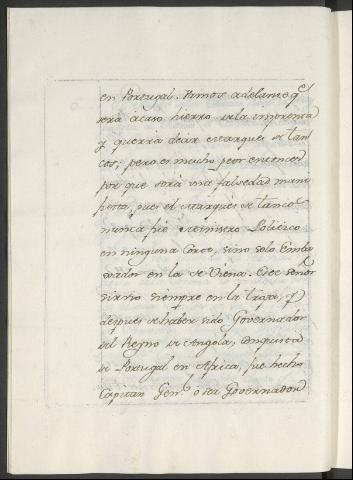 en Portugal. Vamos adelante q.e
sera acaso hierro de la imprenta
y querria decir Marques de Tan-
cos; pero es mucho peor entonces
por que será una falsedad mani-
fiesta, pues el Marques de Tancos
nunca fue Ministro Politico
en ninguna Corte, sino solo Emba-
xador en la de Viena. Este señor
sirvio siempre en la tropa, y
despues de haber sido Governador
del Reyno de Angola, conquista
de Portugal en Africa, fue hecho
Capitan Gen.l ó sea Governador